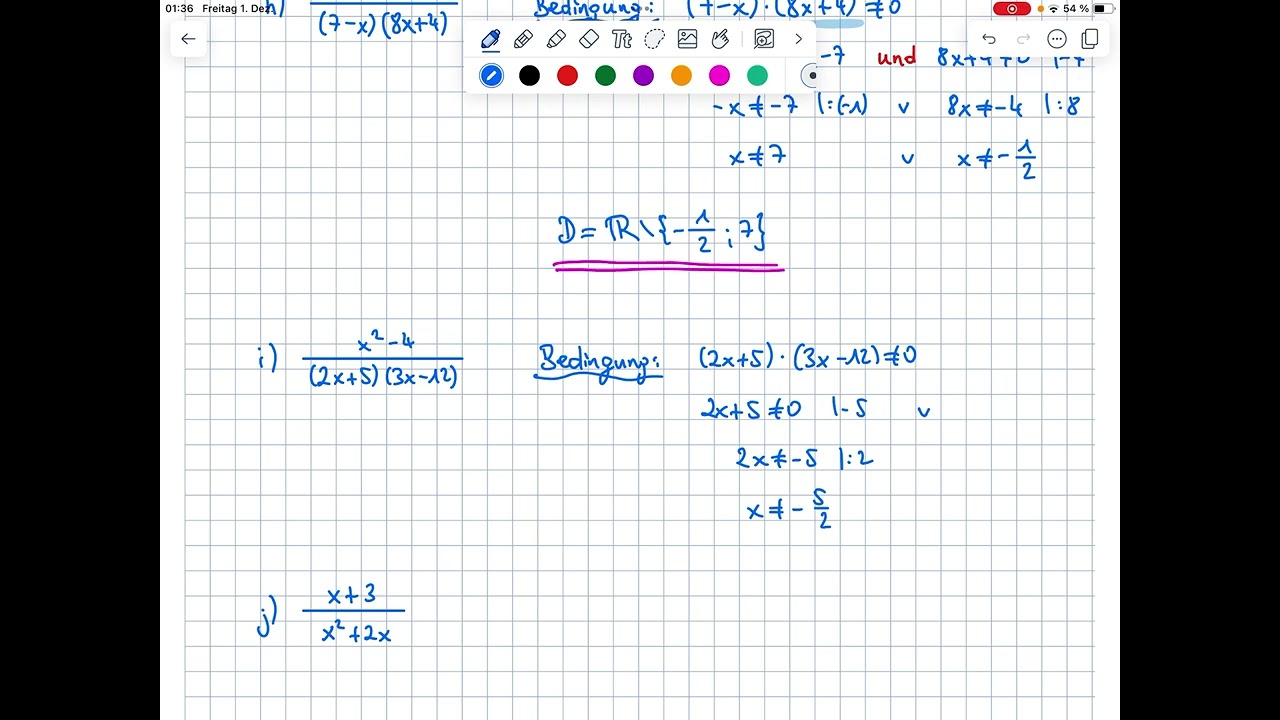 01:36 Freitag 1. Dez.
54 %
h) (7-x)(8x+4)
Bedingung: (7-x)·(8x+4)≠0
Tt
-7 und 8x+4≠0 |-4
-x≠-7 |:(-1) v 8x≠-4 |:8
x≠7 v x≠-1/2
D=ℝ\{-1/2;7}
i) x²-4
(2x+5)(3x-12)
Bedingung: (2x+5)·(3x-12)≠0
2x+5≠0 |-5 v
2x≠-5 |:2
x≠-5/2
j) x+3
x²+2x